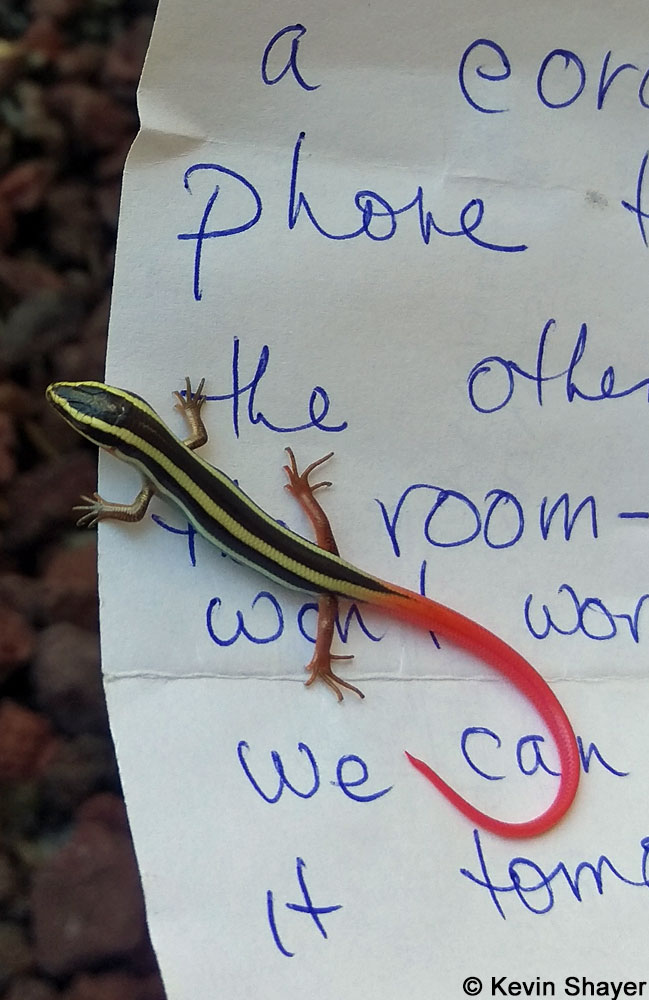 a cor
phone t
the other
room-
won't wor
we can
it tomo
© Kevin Shayer